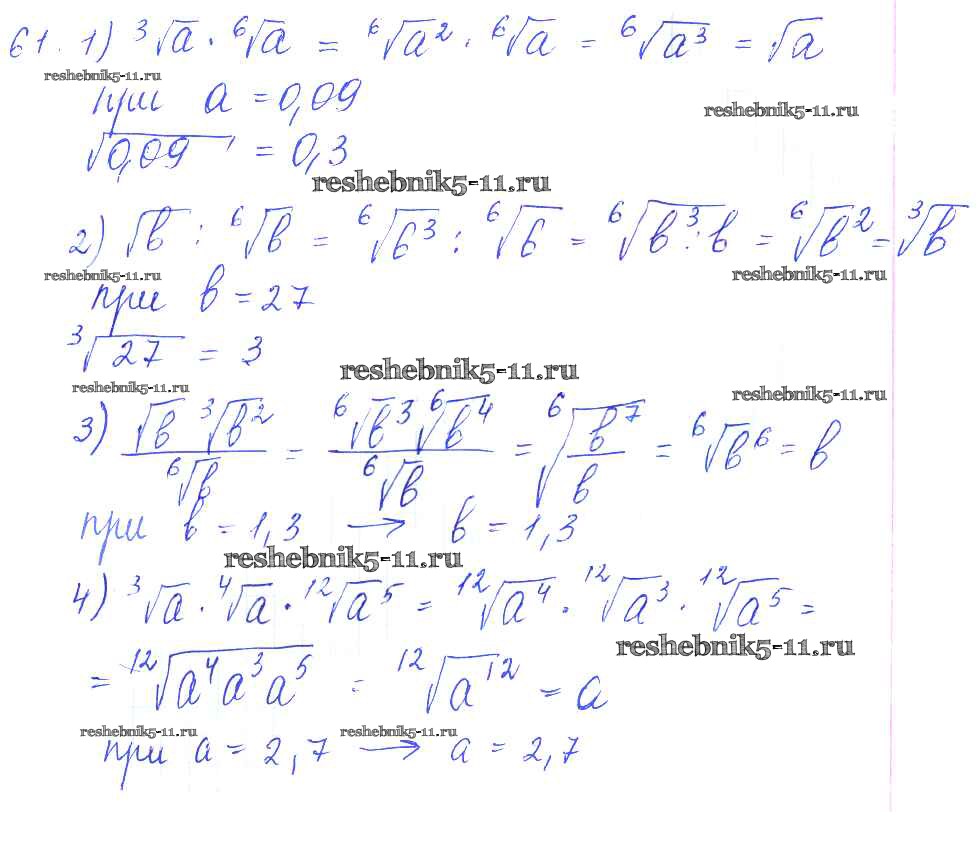 61. 1) ³√a · ⁶√a = ⁶√a² · ⁶√a = ⁶√a³ = √a
reshebnik5-11.ru
при a = 0,09
reshebnik5-11.ru
√0,09 = 0,3
reshebnik5-11.ru
2) √b : ⁶√b = ⁶√b³ : ⁶√b = ⁶√b³:b = ⁶√b² = ³√b
reshebnik5-11.ru reshebnik5-11.ru
при b = 27
³√27 = 3
reshebnik5-11.ru
reshebnik5-11.ru reshebnik5-11.ru
3) (√b ³√b²)/(⁶√b) = (⁶√b³ ⁶√b⁴)/(⁶√b) = ⁶√(b⁷/b) = ⁶√b⁶ = b
при b = 1,3 → b = 1,3
reshebnik5-11.ru
4) ³√a · ⁴√a · ¹²√a⁵ = ¹²√a⁴ · ¹²√a³ · ¹²√a⁵ =
reshebnik5-11.ru
= ¹²√a⁴a³a⁵ = ¹²√a¹² = a
reshebnik5-11.ru reshebnik5-11.ru
при a = 2,7 → a = 2,7